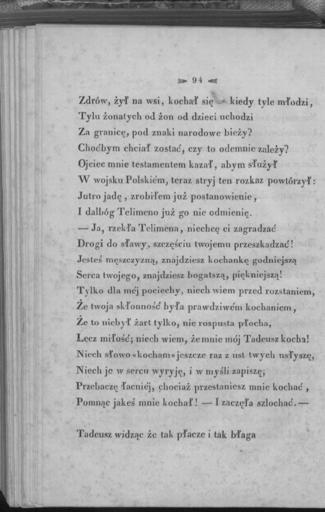 94
Zdrów, żył na wsi, kochał się — kiedy tyle młodzi,
Tylu żonatych od żon od dzieci uchodzi
Za granicę, pod znaki narodowe bieży?
Choćbym chciał zostać, czy to odemnie zależy?
Ojciec mnie testamentem kazał, abym służył
W wojsku Polskiém, teraz stryj ten rozkaz powtórzył:
Jutro jadę, zrobiłem już postanowienie,
I dalbóg Telimeno już go nie odmienię.
— Ja, rzekła Telimena, niechcę ci zagradzać
Drogi do sławy, szczęściu twojemu przeszkadzać!
Jesteś mężczyzną, znajdziesz kochankę godniejszą
Serca twojego, znajdziesz bogatszą, piękniejszą!
Tylko dla méj pociechy, niech wiem przed rozstaniem,
Że twoja skłonność była prawdziwém kochaniem,
Że to niebył żart tylko, nie rospusta płocha,
Lecz miłość; niech wiem, że mnie mój Tadeusz kocha!
Niech słowo «kocham» jeszcze raz z ust twych usłyszę,
Niech je w sercu wyryję, i w myśli zapiszę;
Przebaczę łacniéj, chociaż przestaniesz mnie kochać,
Pomnąc jakeś mnie kochał! — I zaczęła szlochać. —
Tadeusz widząc że tak płacze i tak błaga